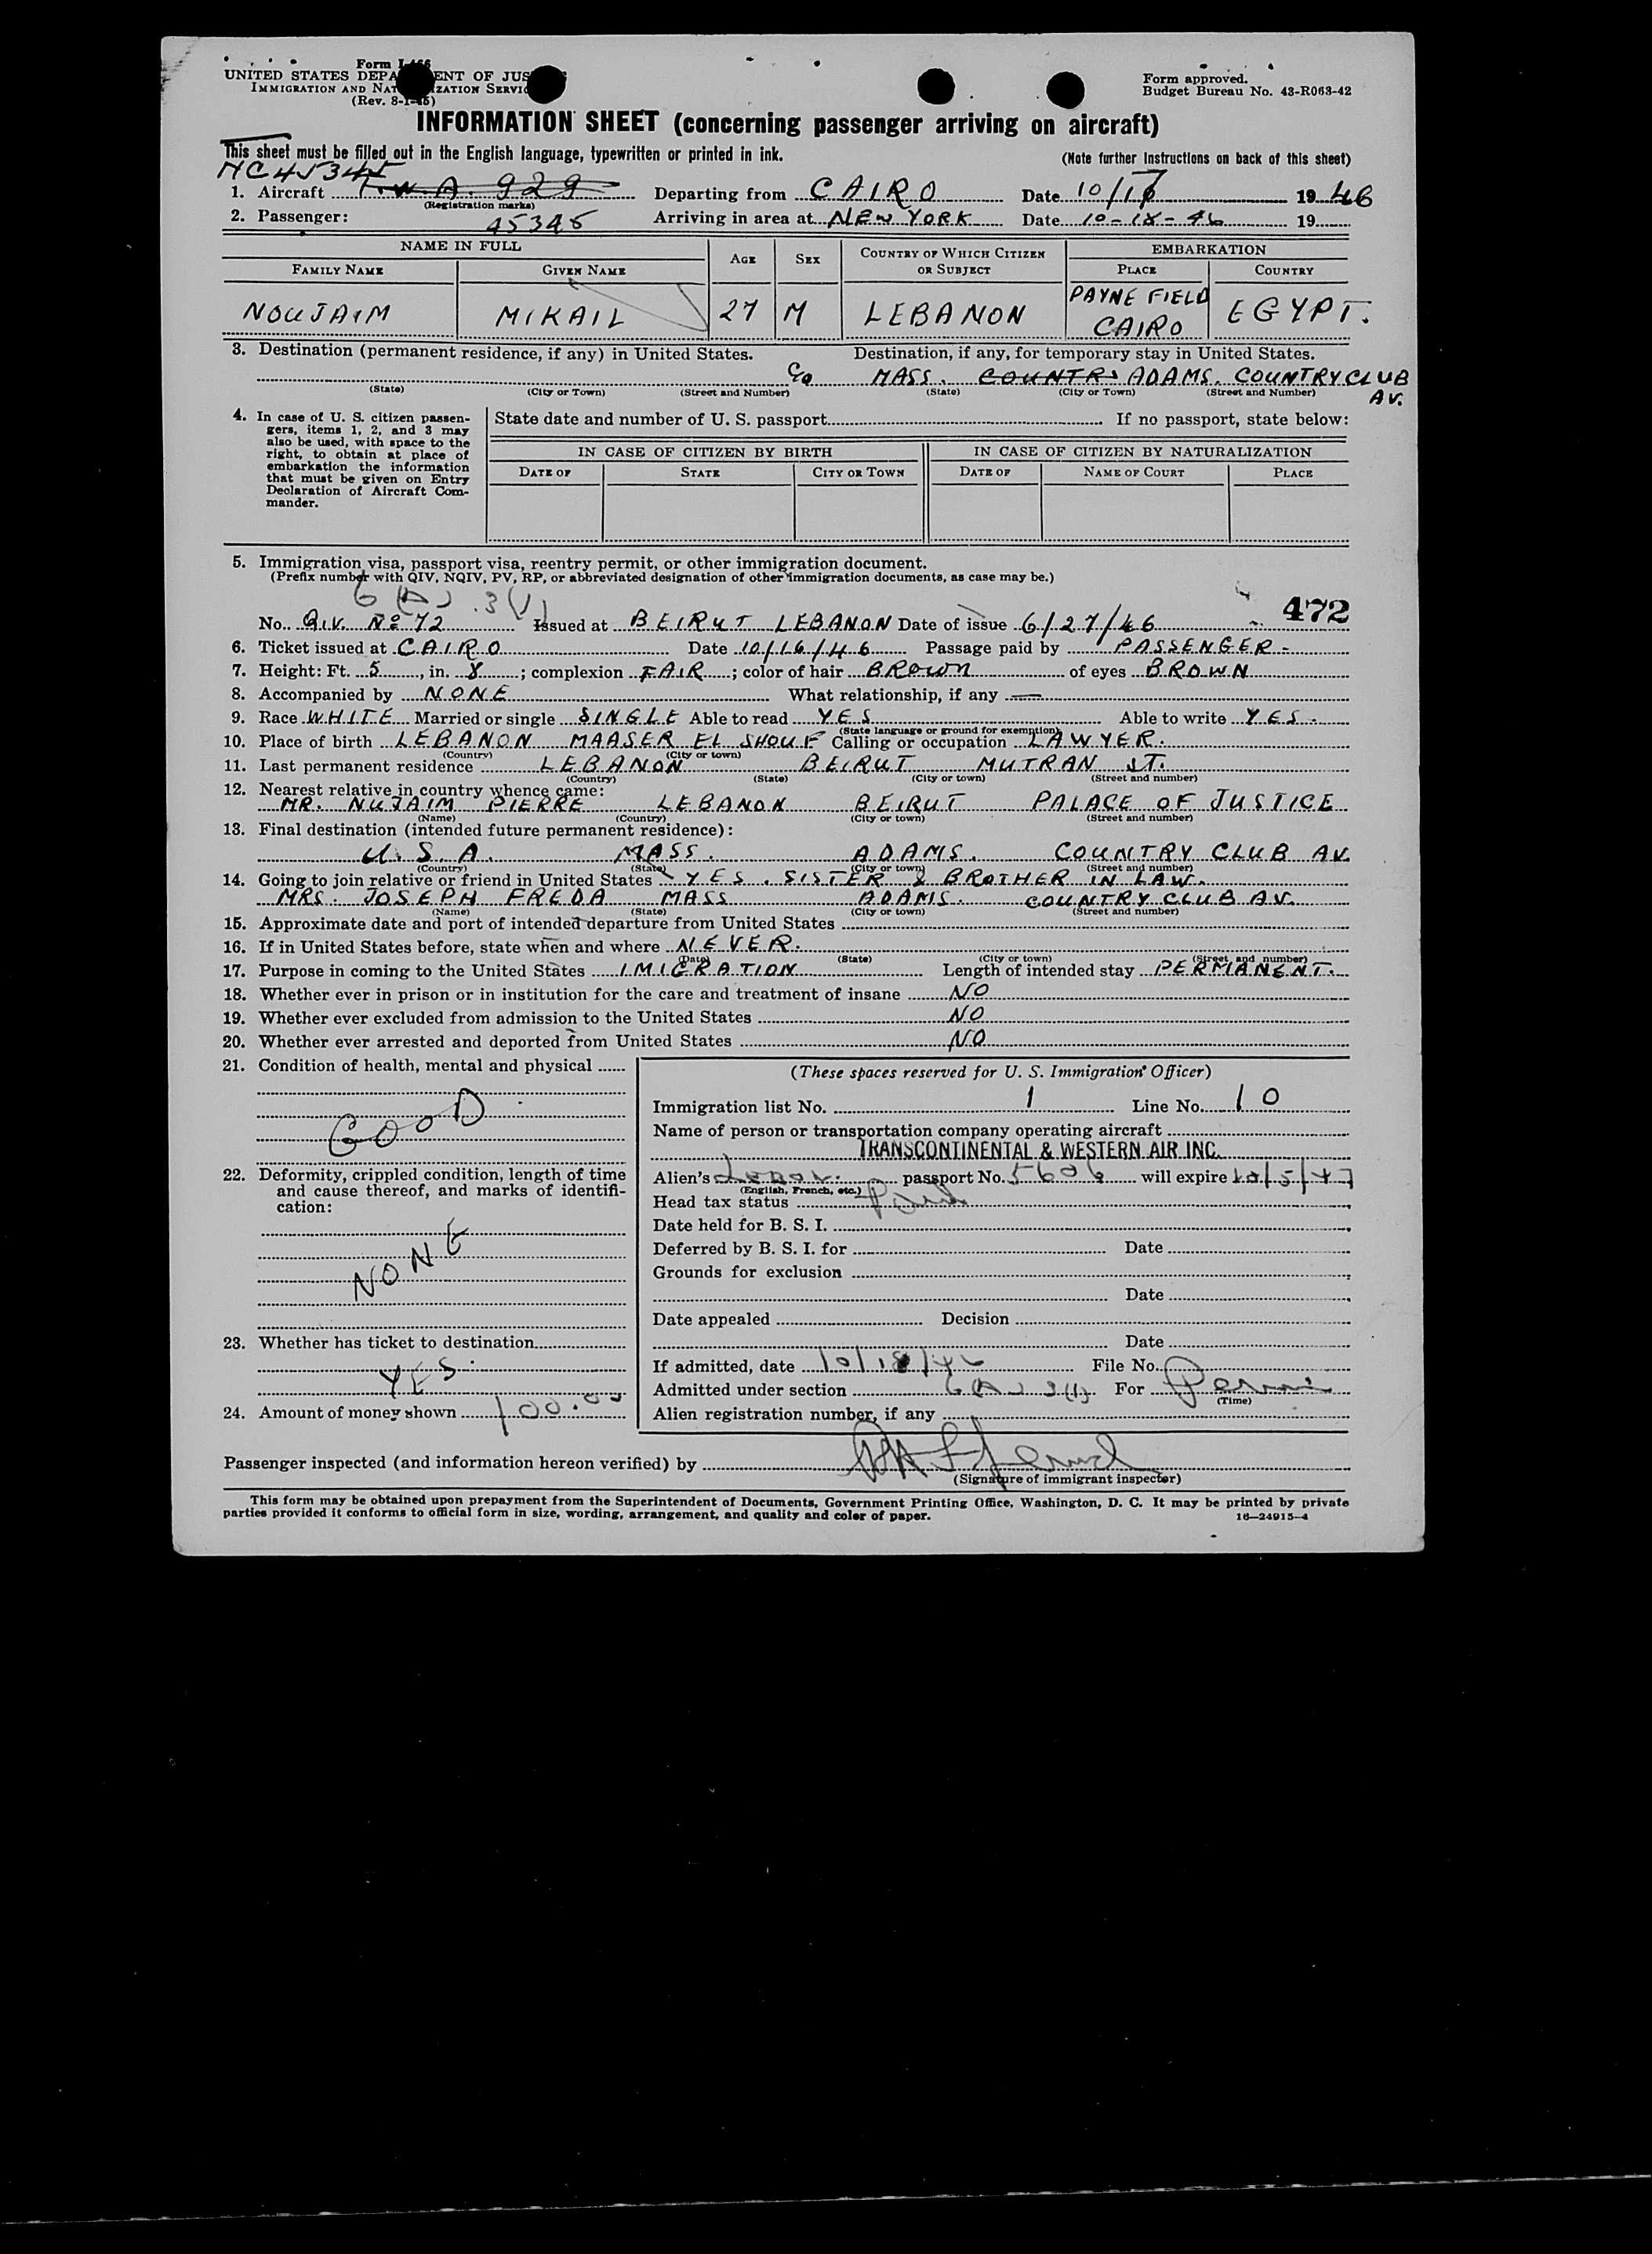 Form I-466
UNITED STATES DEPARTMENT OF JUSTICE
IMMIGRATION AND NATURALIZATION SERVICE
(Rev. 8-1-45)
Form approved.
Budget Bureau No. 43-R063-42
INFORMATION SHEET (concerning passenger arriving on aircraft)
This sheet must be filled out in the English language, typewritten or printed in ink.
(Note further instructions on back of this sheet)
NC 45345
1. Aircraft T.W.A. 929 Departing from CAIRO Date 10/17 1946
(Registration marks)
2. Passenger: 45345 Arriving in area at NEW YORK Date 10-18-46 19
NAME IN FULL AGE SEX COUNTRY OF WHICH CITIZEN OR SUBJECT EMBARKATION
FAMILY NAME GIVEN NAME PLACE COUNTRY
NOUJAIM MIKAIL 27 M LEBANON PAYNE FIELD CAIRO EGYPT.
3. Destination (permanent residence, if any) in United States. Destination, if any, for temporary stay in United States.
c/o MASS. COUNTRY ADAMS. COUNTRY CLUB AV.
(State) (City or Town) (Street and Number) (State) (City or Town) (Street and Number)
4. In case of U. S. citizen passengers, items 1, 2, and 3 may also be used, with space to the right, to obtain at place of embarkation the information that must be given on Entry Declaration of Aircraft Commander.
State date and number of U. S. passport If no passport, state below:
IN CASE OF CITIZEN BY BIRTH IN CASE OF CITIZEN BY NATURALIZATION
DATE OF STATE CITY OR TOWN DATE OF NAME OF COURT PLACE
5. Immigration visa, passport visa, reentry permit, or other immigration document.
(Prefix number with QIV, NQIV, PV, RP, or abbreviated designation of other immigration documents, as case may be.)
6 (A) 3(1) 472
No. Q.I.V. No 72 Issued at BEIRUT LEBANON Date of issue 6/27/46
6. Ticket issued at CAIRO Date 10/16/46 Passage paid by PASSENGER-
7. Height: Ft. 5, in. 8; complexion FAIR; color of hair BROWN of eyes BROWN
8. Accompanied by NONE What relationship, if any —
9. Race WHITE Married or single SINGLE Able to read YES Able to write YES.
(State language or ground for exemption)
10. Place of birth LEBANON MAASER EL SHOUF Calling or occupation LAWYER.
(Country) (City or town)
11. Last permanent residence LEBANON BEIRUT MUTRAN ST.
(Country) (State) (City or town) (Street and number)
12. Nearest relative in country whence came:
MR. NUJAIM PIERRE LEBANON BEIRUT PALACE OF JUSTICE
(Name) (Country) (City or town) (Street and number)
13. Final destination (intended future permanent residence):
U.S.A. MASS. ADAMS. COUNTRY CLUB AV.
(Country) (State) (City or town) (Street and number)
14. Going to join relative or friend in United States YES. SISTER & BROTHER IN LAW.
MRS. JOSEPH FREDA MASS ADAMS. COUNTRY CLUB AV.
(Name) (State) (City or town) (Street and number)
15. Approximate date and port of intended departure from United States
16. If in United States before, state when and where NEVER.
(Date) (State) (City or town) (Street and number)
17. Purpose in coming to the United States IMIGRATION Length of intended stay PERMANENT.
18. Whether ever in prison or in institution for the care and treatment of insane NO
19. Whether ever excluded from admission to the United States NO
20. Whether ever arrested and deported from United States NO
21. Condition of health, mental and physical
GOOD
22. Deformity, crippled condition, length of time and cause thereof, and marks of identification:
NONE
23. Whether has ticket to destination
YES.
24. Amount of money shown 100.00
(These spaces reserved for U. S. Immigration Officer)
Immigration list No. 1 Line No. 10
Name of person or transportation company operating aircraft
TRANSCONTINENTAL & WESTERN AIR INC.
Alien's Leban. passport No. 5606 will expire 10/5/47
(English, French, etc.)
Head tax status Paid
Date held for B. S. I.
Deferred by B. S. I. for Date
Grounds for exclusion
Date
Date appealed Decision
Date
If admitted, date 10/18/46 File No.
Admitted under section 6(A) 3(1) For Perm
(Time)
Alien registration number, if any
Passenger inspected (and information hereon verified) by
(Signature of immigrant inspector)
This form may be obtained upon prepayment from the Superintendent of Documents, Government Printing Office, Washington, D. C. It may be printed by private
parties provided it conforms to official form in size, wording, arrangement, and quality and color of paper.
16—24915-4